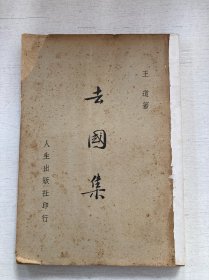 王道著
去國集
人生出版社印行